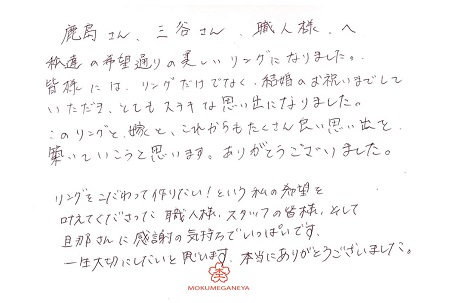 鹿島さん、三谷さん、職人様、へ
私達の希望通りの美しいリングになりました。
皆様には、リングだけでなく、結婚のお祝いまでして
いただき、とてもステキな思い出になりました。
このリングと、嫁と、これからもたくさん良い思い出を、
築いていこうと思います。ありがとうございました。
リングをこだわって作りたい!という私の希望を
叶えてくださった職人様、スタッフの皆様、そして
旦那さんに感謝の気持ちでいっぱいです。
一生大切にしたいと思います。本当にありがとうございました。
MOKUMEGANEYA